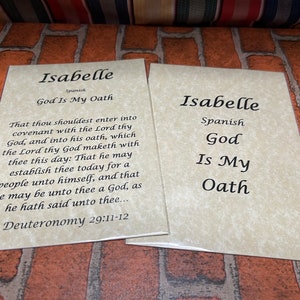 Isabelle
Spanish
God Is My Oath
That thou shouldest enter into
covenant with the Lord thy
God, and into his oath, which
the Lord thy God maketh with
thee this day: That he may
establish thee today for a
people unto himself, and that
he may be unto thee a God, as
he hath said unto thee...
Deuteronomy 29:11-12
Isabelle
Spanish
God
Is My
Oath